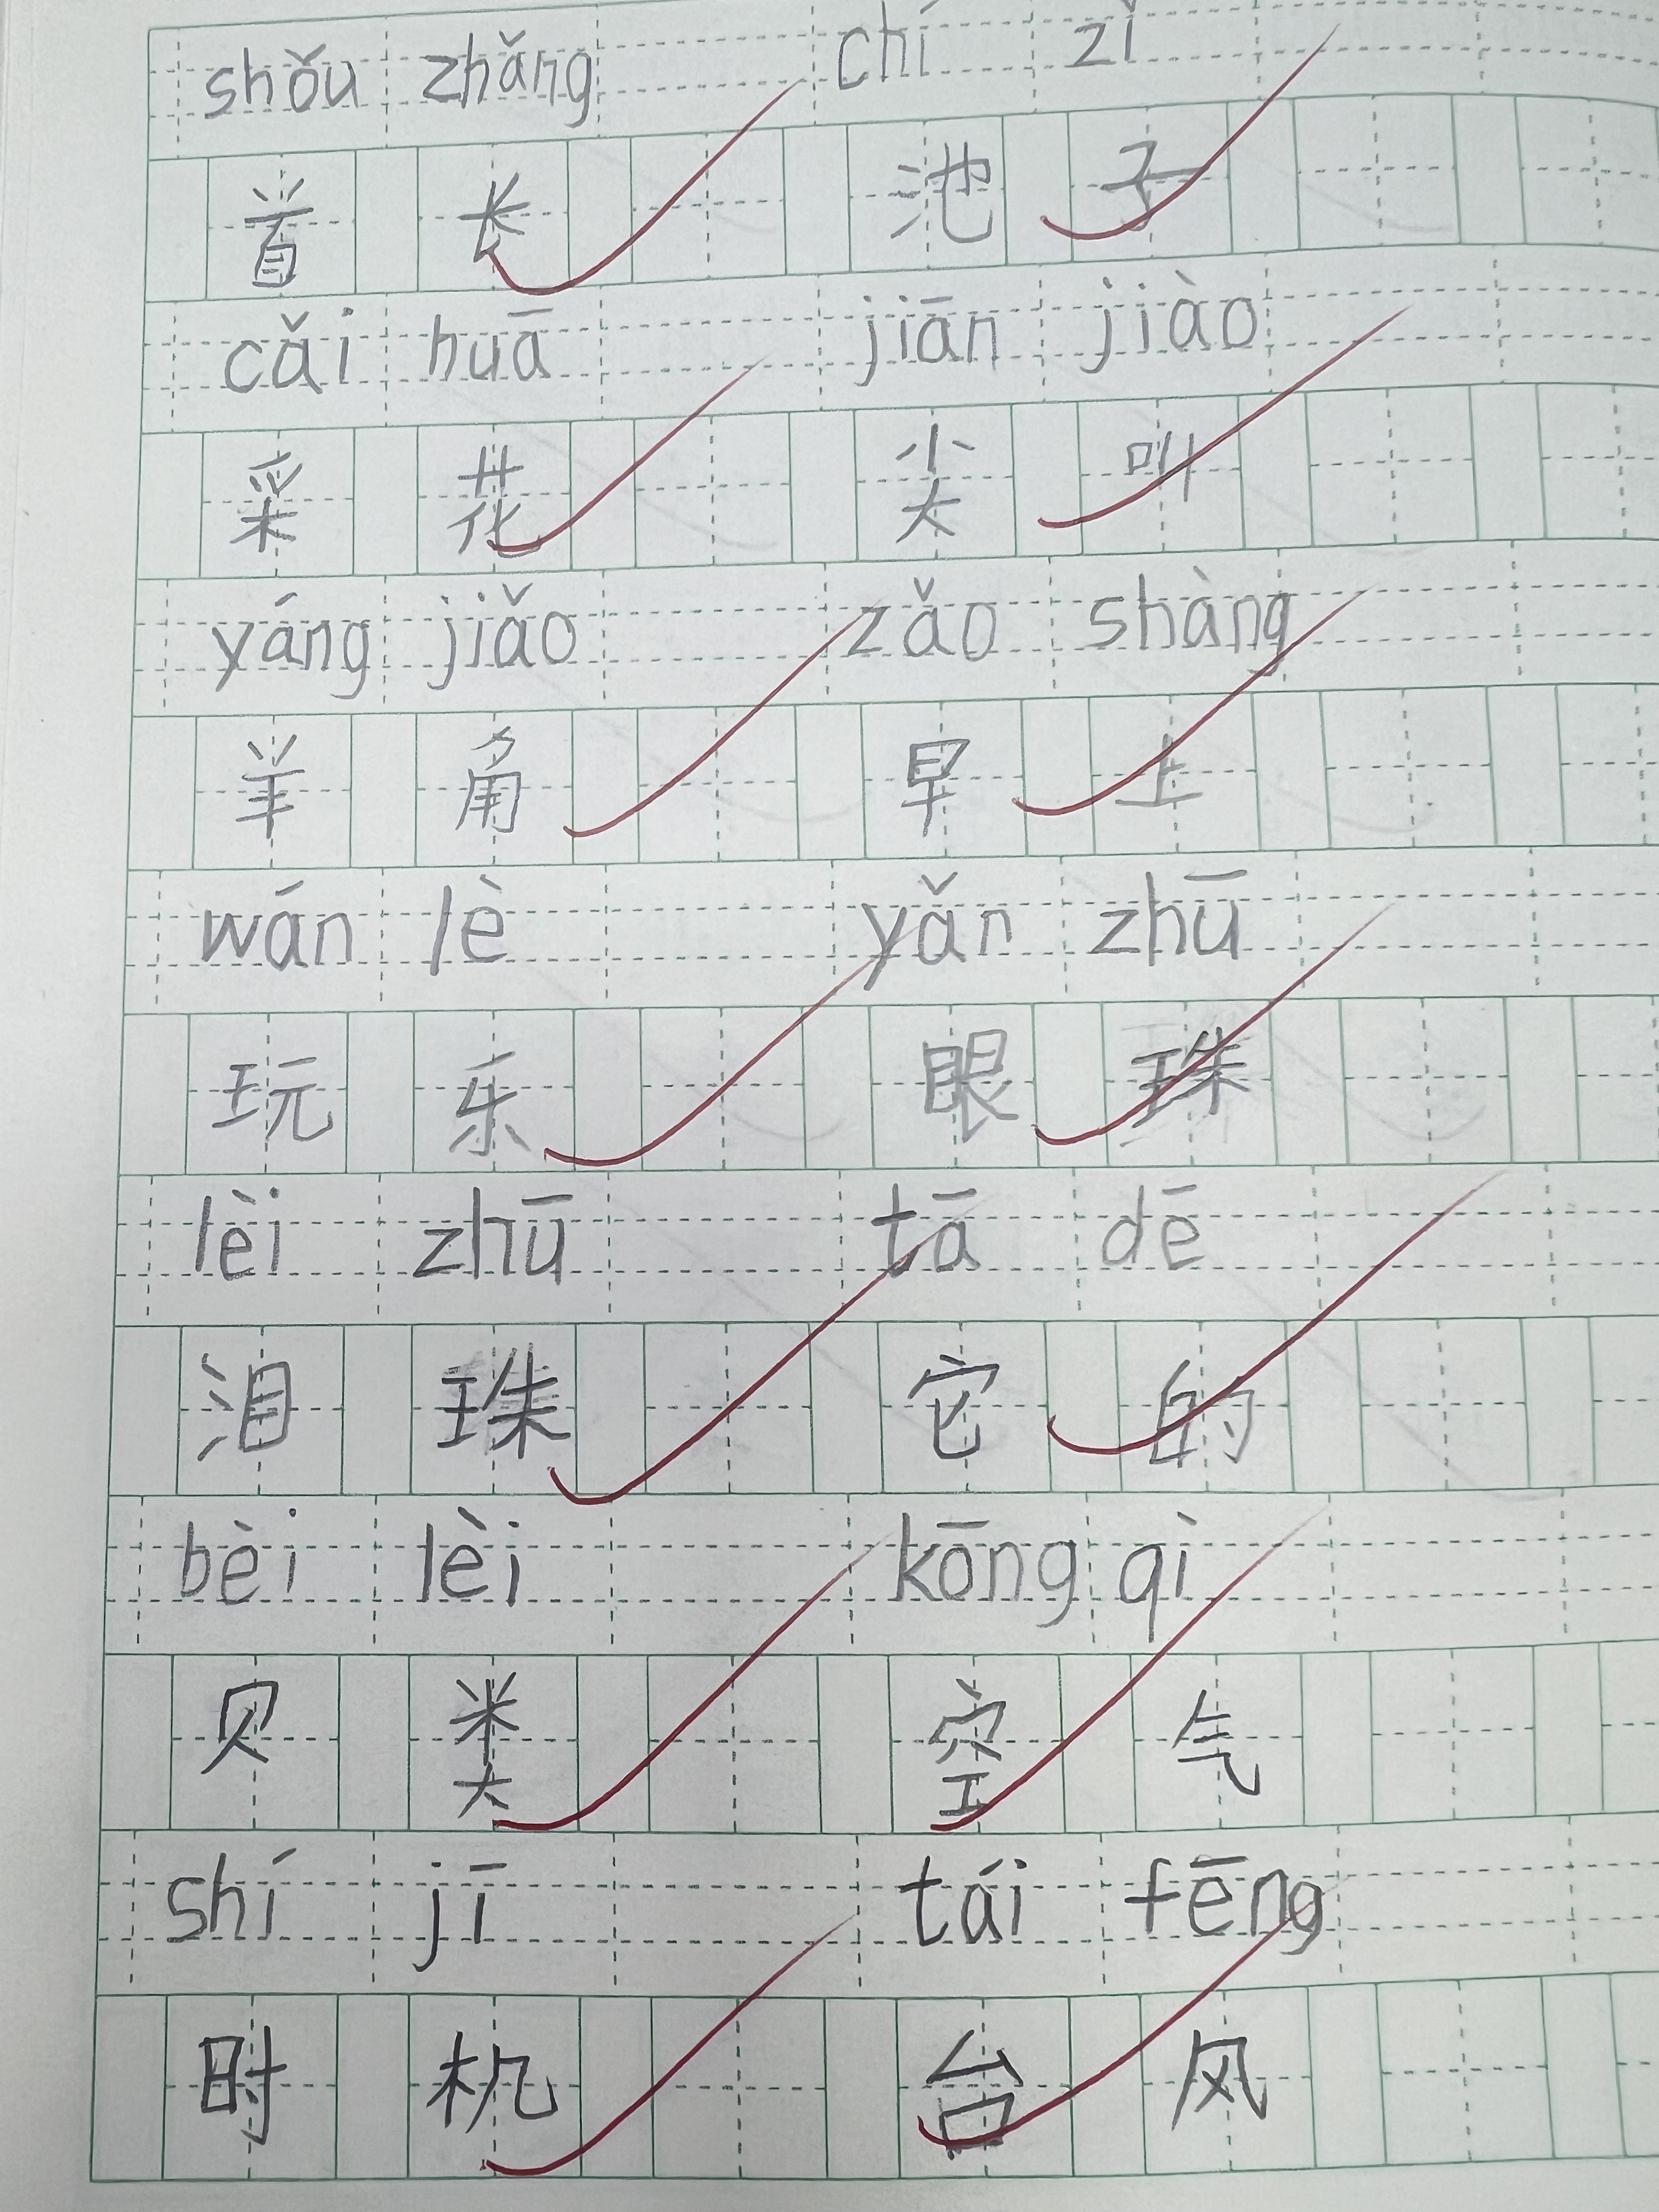 shǒu zhǎng chí zǐ
首长 池子
cǎi huā jiān jiào
采花 尖叫
yáng jiǎo zǎo shàng
羊角 早上
wán lè yǎn zhū
玩乐 眼珠
lèi zhū tā dē
泪珠 它的
bèi lèi kōng qì
贝类 空气
shí jī tái fēng
时机 台风